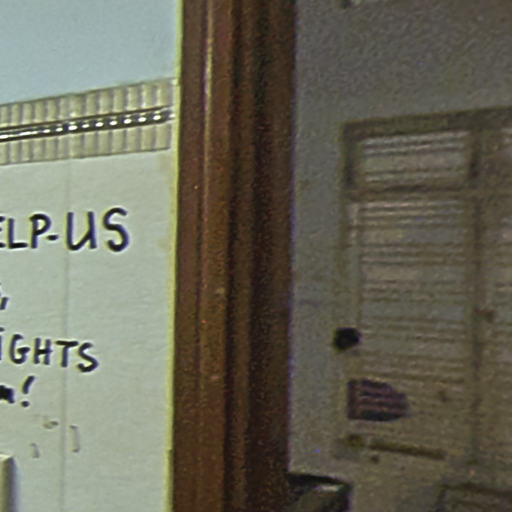 ELP-US
IGHTS